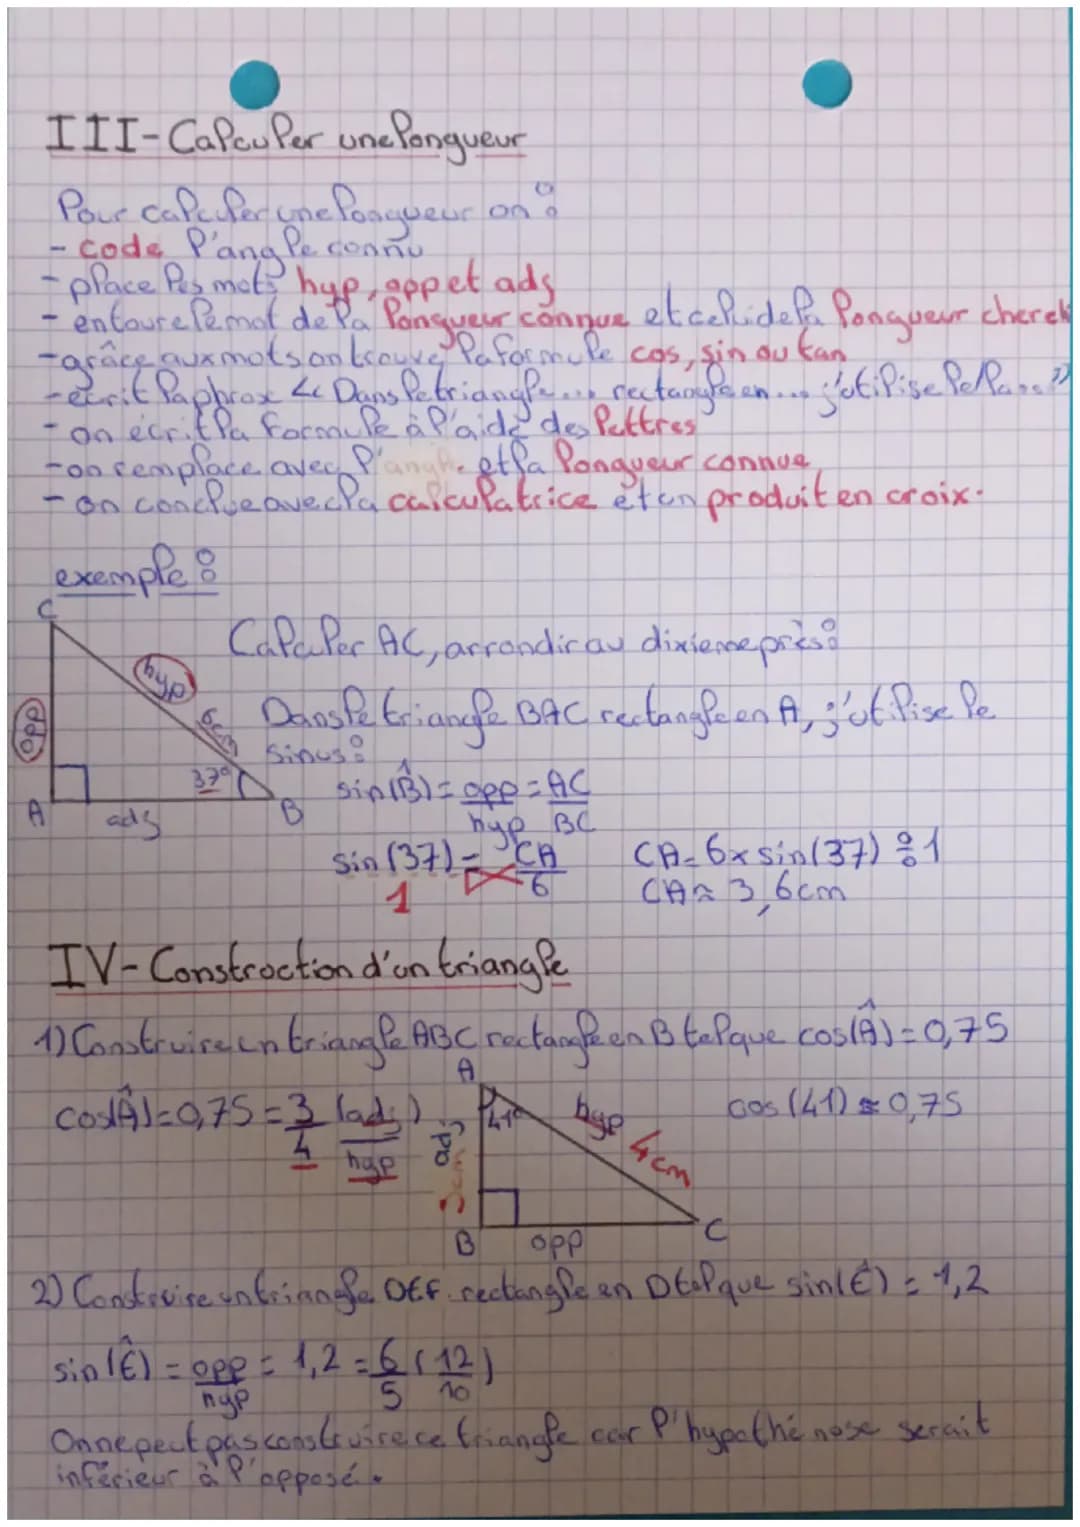 III-Calculer une longueur
Pour calculer une longueur on :
- code l'angle connu
- place les mots hyp, opp et adj
- entoure le mot de la longueur connue et celui de la longueur cherch
- grâce aux mots on trouve la formule cos, sin ou tan
- écrit la phrase << Dans le triangle... rectangle en... j'utilise le/la... >>
- on écrit la formule à l'aide des lettres
- on remplace avec l'angle et la longueur connue
- on conclue avec la calculatrice et un produit en croix.
exemple :
C
Calculer AC, arrondir au dixieme près :
hyp
opp
6cm
Dans le triangle BAC rectangle en A, j'utilise le
sinus :
37°
A
adj
B
sin(B̂) = opp = AC
hyp BC
sin(37) = CA
6
1
CA = 6 x sin(37) ÷ 1
CA ≈ 3,6cm
IV-Construction d'un triangle
1) Construire un triangle ABC rectangle en B tel que cos(Â) = 0,75
A
cos(Â) = 0,75 = 3 (adj)
4 hyp
41°
adj
3cm
hyp
4cm
cos(41) ≈ 0,75
B
opp
C
2) Construire un triangle DEF rectangle en D tel que sin(Ê) = 1,2
sin(Ê) = opp = 1,2 = 6 (12)
hyp 5 10
On ne peut pas construire ce triangle car l'hypothénose serait
inférieur à l'opposé.